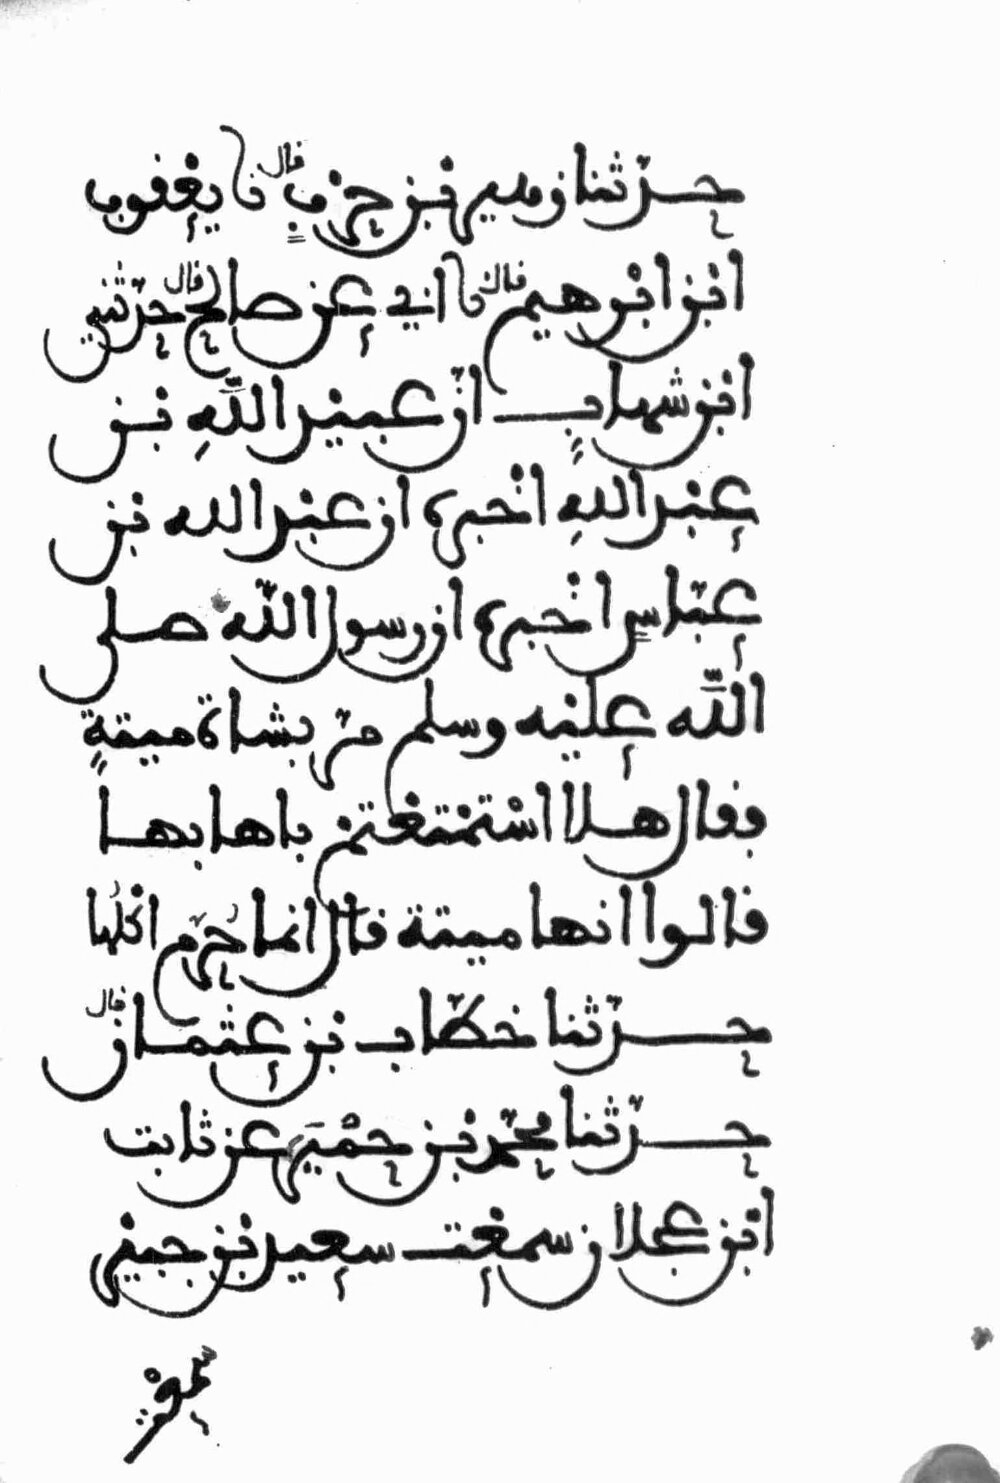 حدثنا زهير بن حرب قال نا يعقوب
ابن ابرهيم قال نا ابي عن صالح قال حدثني
ابن شهاب ان عبيد الله بن
عبد الله اخبره ان عبد الله بن
عباس اخبره ان رسول الله صلى
الله عليه وسلم مر بشاة ميتة
فقال هلا استمتعتم باهابها
قالوا انها ميتة قال انما حرم اكلها
حدثنا خطاب بن عثمان قال
حدثنا محمد بن حمير عن ثابت
ابن عجلان سمعت سعيد بن جبير